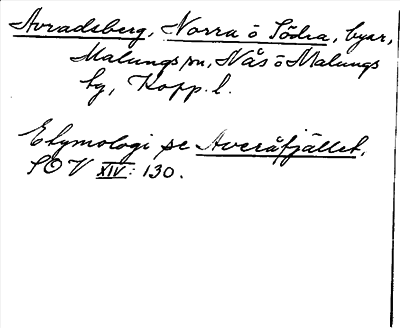 Avradsberg, Norra o Södra, byar,
Malungs sn, Nås o Malungs
tg, Kopp. l.
Etymologi se Averåfjället.
SOV XIV: 130.